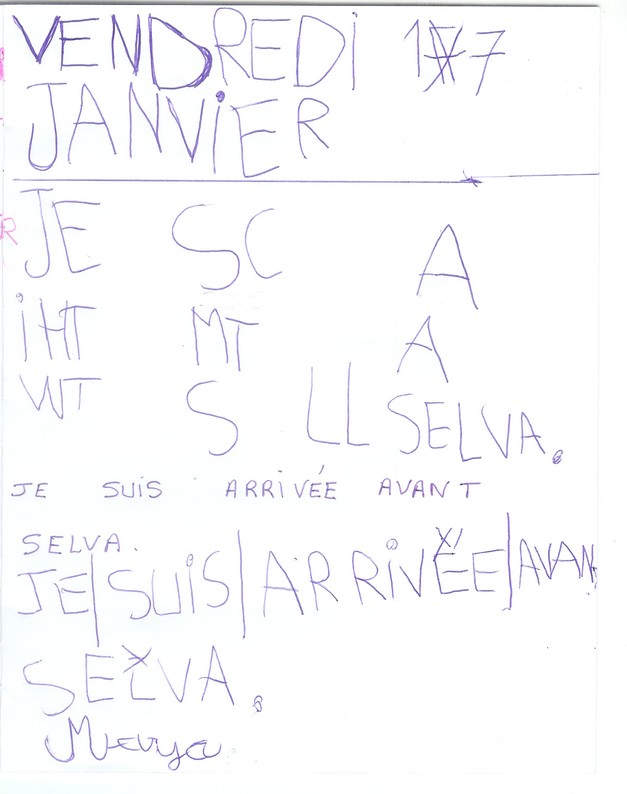 VENDREDI 17
JANVIER
JE SC A
iHT MT A
WT S LL SELVA.
JE SUIS ARRIVÉE AVANT
SELVA.
JE|SUIS|ARRIVÉE|AVAN
SELVA.